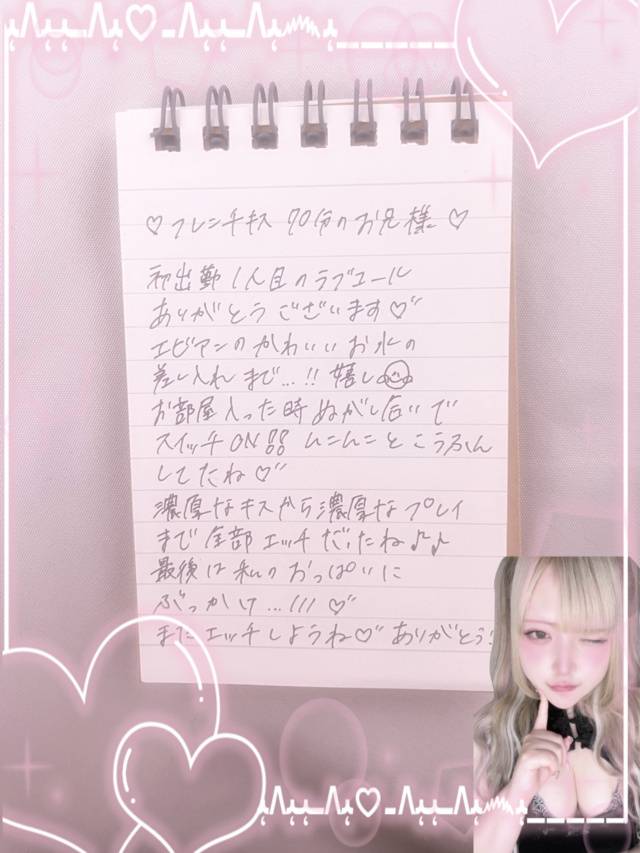 ♡フレンチキス 70分のお兄様♡
初出勤1人目のラブコール
ありがとうございます♡
エビアンのかわいいお水の
差し入れまで...!! 嬉し
お部屋入った時ぬがし合いで
スイッチON!! ムニムニとこうふん
してたね♡
濃厚なキスから濃厚なプレイ
まで全部エッチだったね♪♪
最後は私のおっぱいに
ぶっかけ...///♡
またエッチしようね♡ ありがとう!